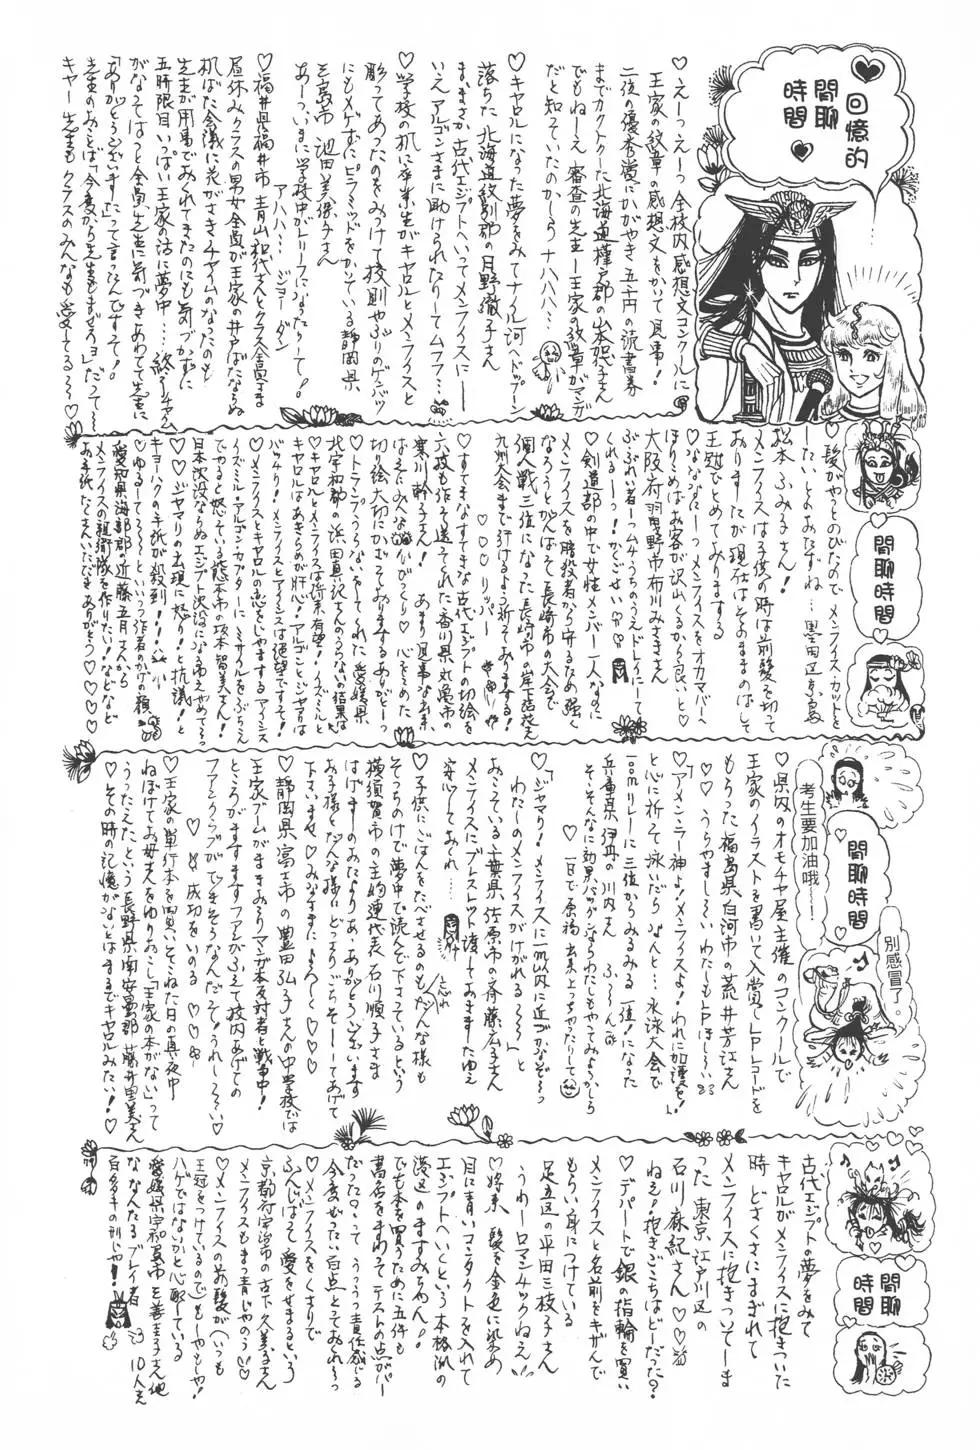 回憶的
閒聊
時間
♡えーっえーっ全校内感想文コンクールに
王家の紋章の感想文をかいて見事!
二位の優秀賞にかがやき五千円の図書券
までカクトクした北海道樺戸郡の山本智子さん
でもねーえ審査の先生ー王家の紋章がマンガ
だと知っていたのかしらナハハハ…
♡キャロルになった夢をみてナイル河へドップーン
落ちた北海道紋別郡の月野徹子さん
まっまさか古代エジプトへいってメンフィスに――
いえアルゴンさまに助けられたなりしてムフフ…
♡学校の机に卒業生がキャロルとメンフィスと
彫ってあったのをみつけて校則やぶりのゲンバツ
にもメゲずにピラミッドをかいている静岡県
三島市 池田美保子さん
あーっいまに学校中がレリーフになったりして!
アハハ…ジョーダン
♡福井県福井市 青山和代さんとクラス全員さま
昼休みクラスの男女全員が王家の井戸ばたならぬ
机ばた会議に花がさきチャイムのなったのも
先生が用事でおくれてきたのにも気づかずに
五時限目いっぱい王家の話に夢中…終りチャイム
がなってはっと全員先生に気づきあわてて先生に
「ありがとうございました」って言ったんですって!
先生のおことば「今度から先生もまぜろヨ」だって〜
キャー先生もクラスのみんなも愛してる〜〜♡
閒聊時間
♡髪がやっとのびたのでメンフィス・カットを
したいとおたずね…墨田区の
松本ふみ子さん!
メンフィスは子供の時は前髪を切って
ありましたが現在はそのままのばして
王冠でとめてあります
♡なななーっメンフィスをオカマバーへ
ほりこめばお客が沢山くるから良いと♡
大阪府羽曳野市布川みさきさん
ぶぶれい者ーっムチうちのうえドレイにして
くれるーっ!かくごせい
♡剣道部の中で女性メンバー一人なのに
メンフィスを暗殺者から守るため強く
なろうとがんばって長崎市の大会で
個人戦三位になった長崎市の岸下諾枝さん
九州大会まで行けるよう祈っております!
♡♡♡リッパー
♡すてきなすてきな古代エジプトの切絵を
六枚も作って送ってくれた香川県丸亀市の
寒川幹子さん! あまり見事な出来
ばえにみんなびっくり 心をこめた
切り絵大切にかざっておりますありがとーっ
♡キャロルとメンフィスは将来有望!イズミルと
♡メンフィスとキャロルの恋をじゃまするアイシス
イズミル・アルゴン・カプターにミサイルをぶちこん
でやると怒っている熊本市の坂本智美さん!
♡♡ジャマリの出現に怒り!と抗議!と
キョーハクの手紙が殺到!!!
♡ゆるしてる〜〜〜といっつも作者のかげの声
愛知県海部郡近藤五月さんから
メンフィスの親衛隊を作りたい!などなど
お手紙たくさんいただきありがとう♡♡♡♡
考生要加油哦〜〜!
閒聊時間
別感冒了。
♡県内のオモチャ屋主催のコンクールで
王家のイラストを書いて入賞してLPレコードを
もらった福島県白河市の荒井芳江さん
♡♡うらやましーいわたしもLPほしーい
♡「アメン・ラー神よ!メンフィスよ!われに加護を!」
と心に祈って泳いだらなんと…水泳大会で
100mリレーに三位からみるみる一位!になった
兵庫県伊丹の川内さん ふ〜〜ん
そっそんなに効果バツグンならわたしもやってみようかしら
♡一日で原稿出来上っちゃったりして
♡「ジャマリ!メンフィスに1m以内に近づかなぞ〜っ
わたしのメンフィスがけがれる〜〜〜」と
おこっている千葉県佐原市の斉藤広子さん
メンフィスにブレスレット渡しておきましたゆえ
安心しておれ……
♡子供にごはんをたべさせるのもだんな様も忘れ
そっちのけで夢中で読んで下さっているという
横須賀市の主婦連代表 石川順子さま
はげましのおたよりああ、ありがとうございます
お子様とだんな様にどっさりごちそーしてあげて
下さいませ♡みなさまによろしく♡♡
♡静岡県富士市の豊田弘子さんの中学校では
王家ブームがまきおこりマンガ本反対者と戦争中!
ところがますますファンがふえて校内あげての
ファンクラブができそうなんだって!うれしーい♡
♡♡♡成功をいのる♡♡♡
♡王家の単行本を買いそこねた日の真夜中
ねぼけてお母さんをゆりおこし「王家の本がない」って
うったえたという長野県南安曇郡 藤井里美さん
♡その時の記憶がないとはまるでキャロルみたい!
閒聊
時間
古代エジプトの夢をみて
キャロルがメンフィスに抱きついた
時 どさくさにまぎれて
メンフィスに抱きついてしま
った 東京江戸川区の
石川麻紀さん♡♡
ねえ!抱きごこちはどーだった?
♡デパートで銀の指輪を買い
メンフィスと名前をキザんで
もらい身につけている
足立区の平田三枝子さん
うわーロマンチックねえ
♡将来 髪を金色に染め
目に青いコンタクトを入れて
エジプトへいくという本格派の
港区のますみちゃん!
でも本を買うために五件も
書店をまわってテストの点がパー
だったって うううっ責任感じる
今度ぜったい百点とっておくれ〜っ
♡♡メンフィスをくさりで
ふんじばって愛をせまるという
京都府宇治市の古下久美子さん
メンフィスもまっ青じゃのう♡
♡♡メンフィスのお髪が(いつも
王冠をつけているので)もしやもしや
ハゲではないかと心配している
愛媛県宇和島市 三善圭子さん他
10人さん
ななんたるブレイ者
百たたきの刑じゃ!